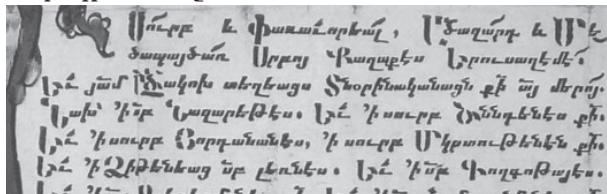 Սուրբ և Փառաւորեալ, Մեծազարդ և Մե
ծապայծառ Սրբոյ Քաղաքէս Երուսաղէմէ.
Եւ յամ տեղեացս Տնօրինականացն քի այ մերոյ.
Նախ՝ ՚ի սբ Նազարեթէս. Եւ ՚ի սուրբ Ծննդենէս քի.
Եւ ՚ի սուրբ Յորդանանէս, ՚ի սուրբ Մկրտութենէն քի.
Եւ ՚ի Ձիթենեաց սբ լեռնէս. Եւ ՚ի սբ Գողգոթայէս.